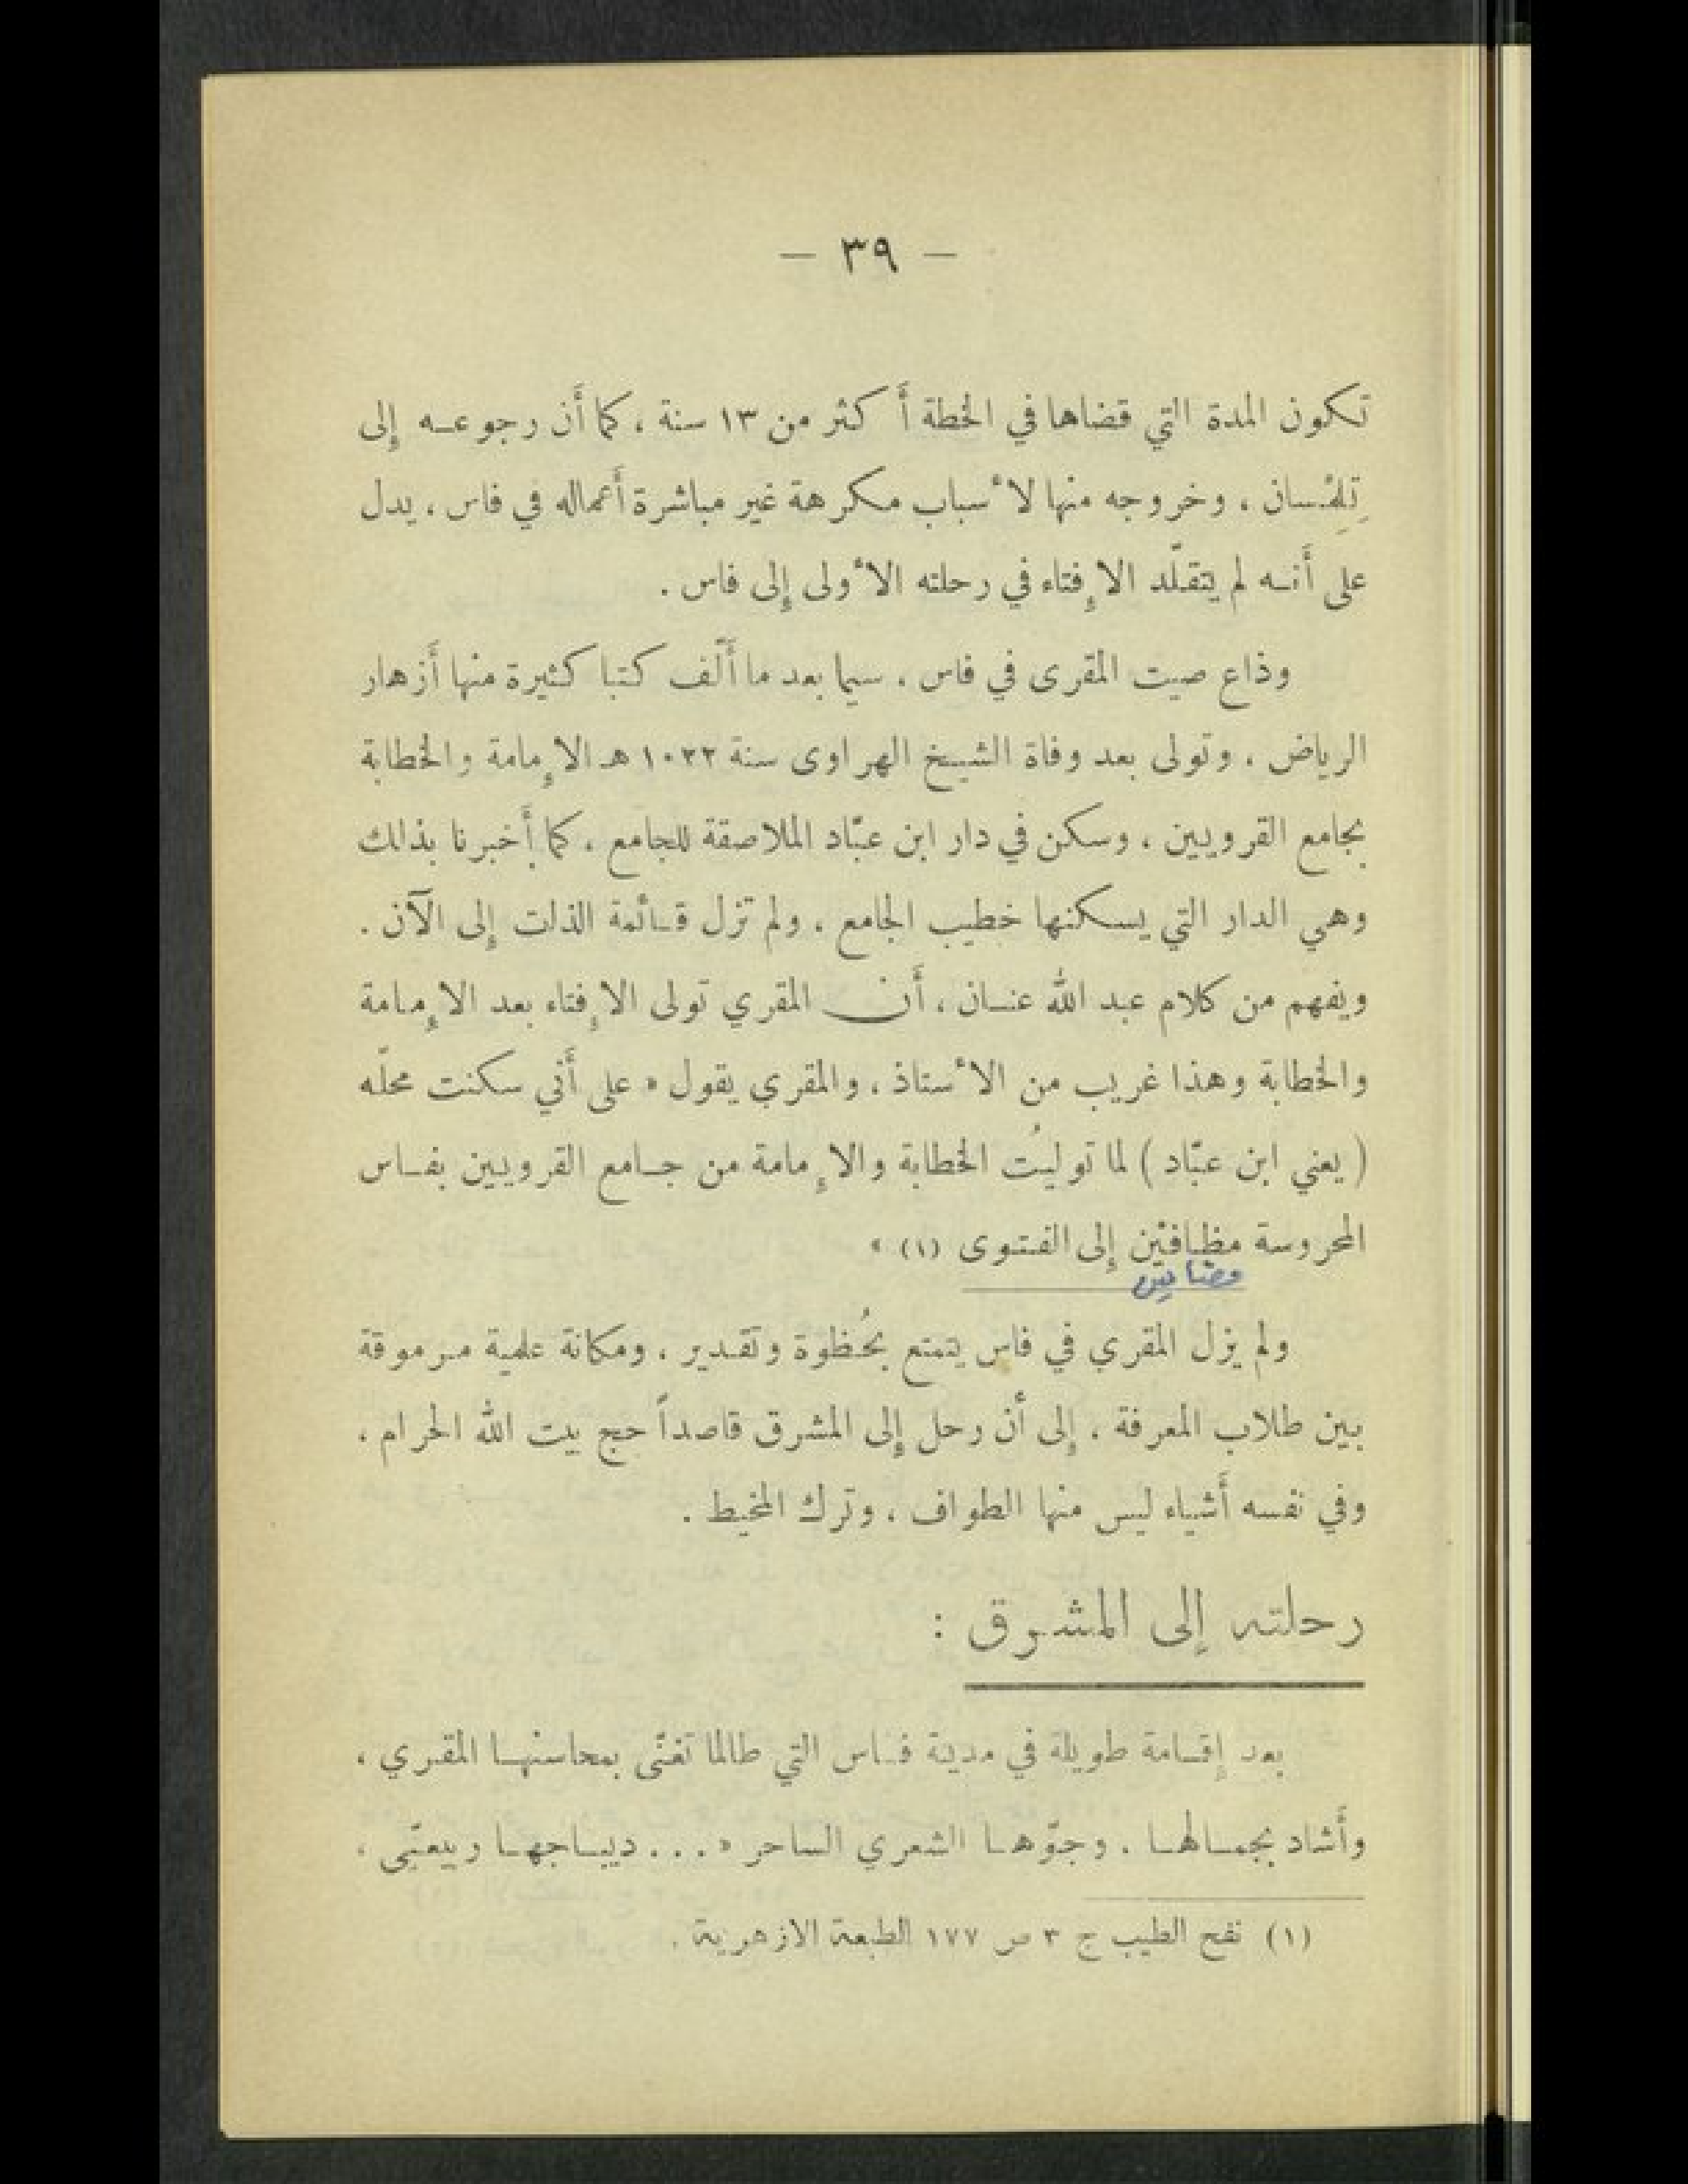 — ٣٩ —
تكون المدة التي قضاها في الخطة أكثر من ١٣ سنة ، كما أن رجوعه إلى
تِلِمْسان ، وخروجه منها لأسباب مكرهة غير مباشرة أعماله في فاس ، يدل
على أنه لم يتقلّد الإفتاء في رحلته الأولى إلى فاس .
وذاع صيت المقرى في فاس ، سيما بعد ما ألّف كتبا كثيرة منها أزهار
الرياض ، وتولى بعد وفاة الشيخ الهراوى سنة ١٠٢٢ هـ الإمامة والخطابة
بجامع القرويين ، وسكن في دار ابن عبّاد الملاصقة للجامع ، كما أخبرنا بذلك
وهي الدار التي يسكنها خطيب الجامع ، ولم تزل قائمة الذات إلى الآن .
ويفهم من كلام عبد الله عنان ، أن المقري تولى الإفتاء بعد الإمامة
والخطابة وهذا غريب من الأستاذ ، والمقري يقول « على أني سكنت محلّه
( يعني ابن عبّاد ) لما توليتُ الخطابة والإمامة من جامع القرويين بفاس
المحروسة مظافيْن إلى الفتوى (١) »
مضافين
ولم يزل المقري في فاس يتمتع بحُظوة وتقدير ، ومكانة علمية مرموقة
بين طلاب المعرفة ، إلى أن رحل إلى المشرق قاصداً حج بيت الله الحرام ،
وفي نفسه أشياء ليس منها الطواف ، وترك المخيط .
رحلته إلى المشرق :
بعد إقامة طويلة في مدينة فاس التي طالما تغنّى بمحاسنها المقري ،
وأشاد بجمالها ، وجوّها الشعري الساحر « ... ديباجها ربيعيّ ،
(١) نفح الطيب ج ٣ ص ١٧٧ الطبعة الازهرية .